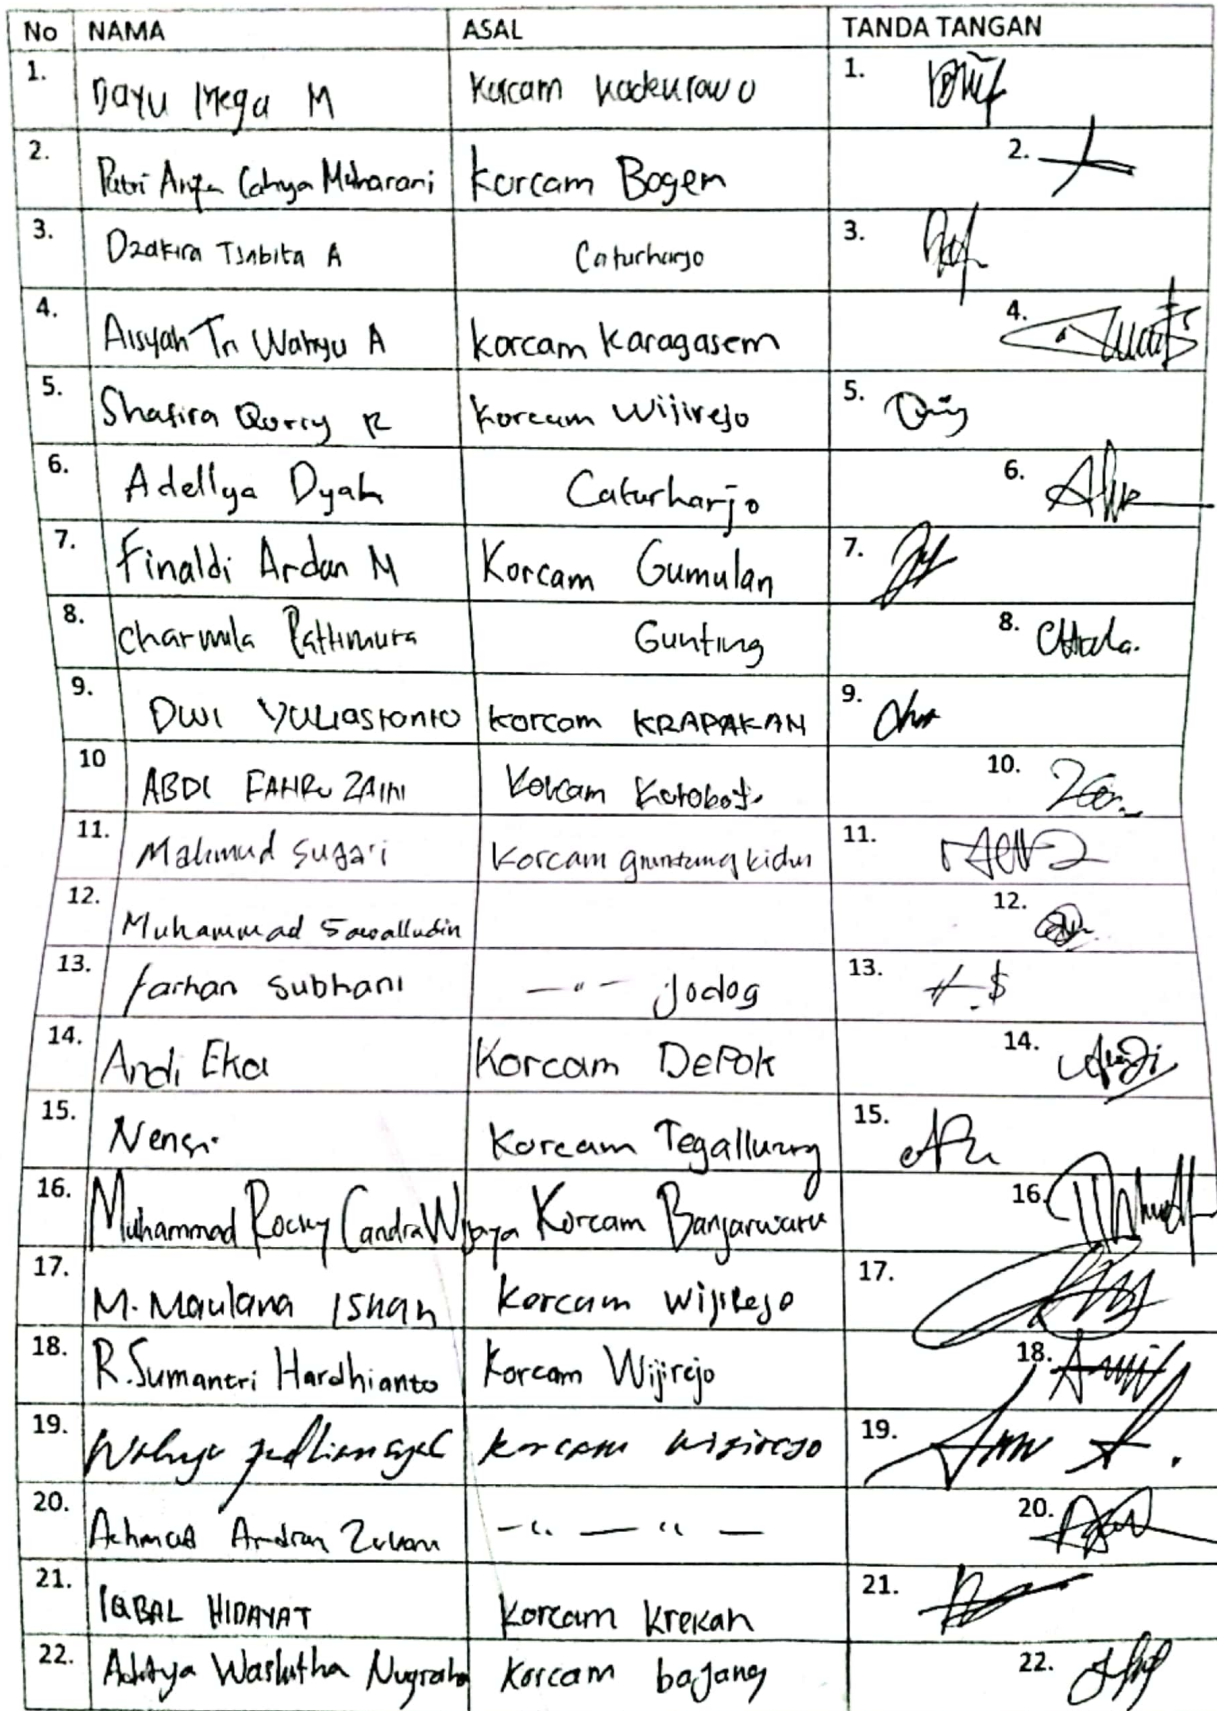 No NAMA ASAL TANDA TANGAN
1. Dayu Mega M Korcam Kadekrowo 1.
2. Putri Anya Cahya Maharani Korcam Bogem 2.
3. Dzakira Tsabita A Caturharjo 3.
4. Aisyah Tri Wahyu A Korcam Karagasem 4.
5. Shafira Qorry R Korcam Wijirejo 5.
6. Adellya Dyah Caturharjo 6.
7. Finaldi Ardan M Korcam Gumulan 7.
8. Charmila Pattimura Gunting 8.
9. DWI YULIASTONTO Korcam KRAPAKAN 9.
10 ABDI FAHRU ZAINI Korcam 10.
11. Mahmud Suza'i Korcam kidul 11.
12. Muhammad Sawalludin 12.
13. Farhan Subhani —"— Jodog 13.
14. Andi Eka Korcam DePok 14.
15. Nensi Korcam Tegallurung 15.
16. Muhammad Rocky Candra Wijaya Korcam Banjarwaru 16.
17. M. Maulana Ishan Korcam Wijirejo 17.
18. R. Sumantri Hardhianto Korcam Wijirejo 18.
19. Wahyu Korcam Wijirejo 19.
20. Achmad —". — " — 20.
21. IQBAL HIDAYAT Korcam Krekah 21.
22. Aditya Waskitha Nugraha Korcam bajang 22.